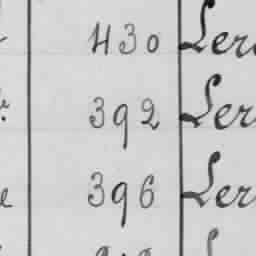 430 Ler
392 Ler
396 Ler